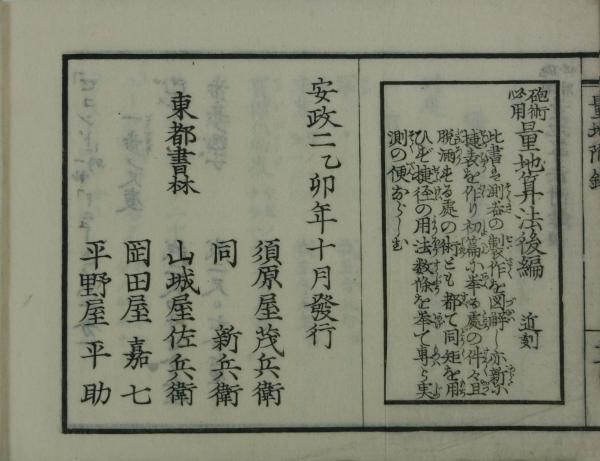 量地附録
砲術必用 量地算法後編 近刻
此書は測器の製作を図解し亦新に
捷表を作り初篇に挙る處の件々且
脱漏する處の術とも都て同矩を用
ひを捷径の用法数條を挙て専ら実
測の便ならしむ
安政二乙卯年十月發行
東都書林
須原屋茂兵衛
同 新兵衛
山城屋佐兵衛
岡田屋嘉七
平野屋平助